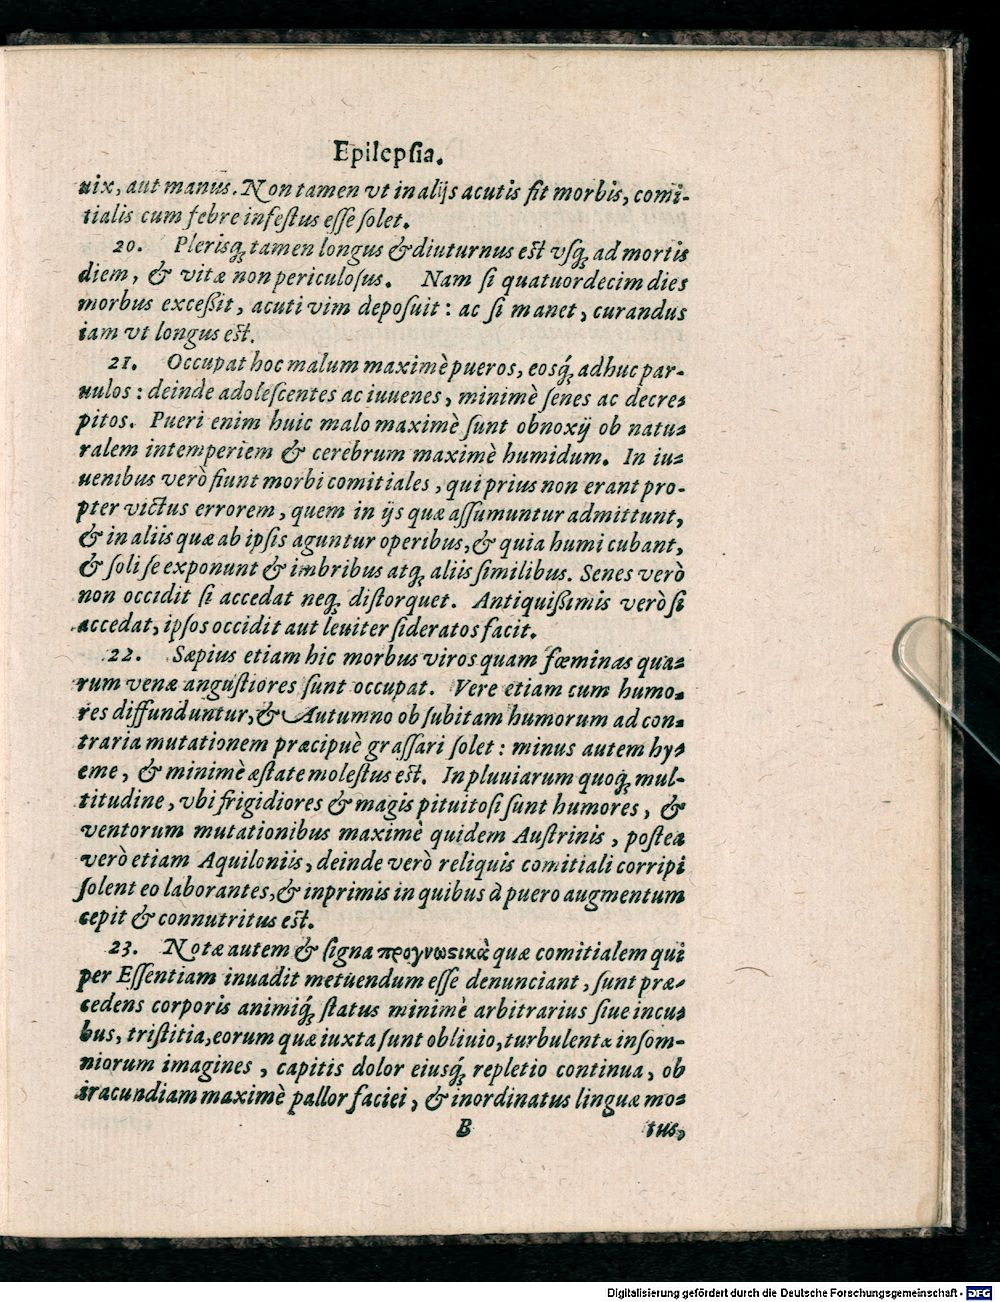 Epilepſia.
uix, aut manus. Non tamen vt in alijs acutis fit morbis, comi-
tialis cum febre infeſtus eſſe ſolet.
20. Plerisq́; tamen longus & diuturnus est vſq; ad mortis
diem, & vitæ non periculoſus. Nam ſi quatuordecim dies
morbus exceßit, acuti vim depoſuit: ac ſi manet, curandus
iam vt longus est.
21. Occupat hoc malum maximè pueros, eosq́; adhuc par-
uulos: deinde adoleſcentes ac iuuenes, minimè ſenes ac decre-
pitos. Pueri enim huic malo maximè ſunt obnoxij ob natu-
ralem intemperiem & cerebrum maximè humidum. In iu-
uenibus verò fiunt morbi comitiales, qui prius non erant pro-
pter victus errorem, quem in ijs quæ aſſumuntur admittunt,
& in aliis quæ ab ipſis aguntur operibus, & quia humi cubant,
& ſoli ſe exponunt & imbribus atq; aliis ſimilibus. Senes verò
non occidit ſi accedat neq; diſtorquet. Antiquißimis verò ſi
accedat, ipſos occidit aut leuiter ſideratos facit.
22. Sæpius etiam hic morbus viros quam fœminas qua-
rum venæ anguſtiores ſunt occupat. Vere etiam cum humo-
res diffunduntur, & Autumno ob ſubitam humorum ad con-
traria mutationem præcipuè graſſari ſolet: minus autem hy-
eme, & minimè æſtate moleſtus est. In pluuiarum quoq; mul-
titudine, vbi frigidiores & magis pituitoſi ſunt humores, &
ventorum mutationibus maximè quidem Auſtrinis, poſtea
verò etiam Aquiloniis, deinde verò reliquis comitiali corripi
ſolent eo laborantes, & inprimis in quibus à puero augmentum
cepit & connutritus est.
23. Notæ autem & ſigna προγνωϛικὰ quæ comitialem qui
per Eſſentiam inuadit metuendum eſſe denunciant, ſunt præ-
cedens corporis animiq́; ſtatus minimè arbitrarius ſiue incu-
bus, triſtitia, eorum quæ iuxta ſunt obliuio, turbulentæ inſom-
niorum imagines, capitis dolor eiusq́; repletio continua, ob
iracundiam maximè pallor faciei, & inordinatus linguæ mo-
B tus,
Digitalisierung gefördert durch die Deutsche Forschungsgemeinschaft - DFG